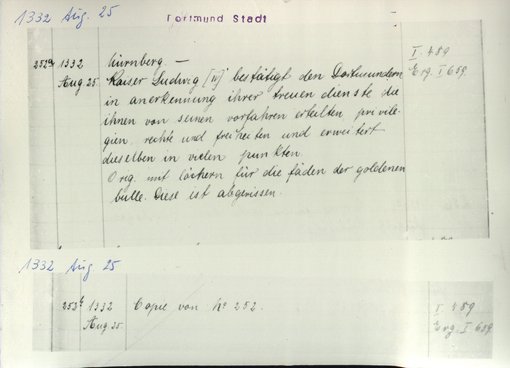 1332 Aug. 25
Dortmund Stadt
252a 1332 Nürnberg. — I. 489
Aug 25. Kaiser Ludwig [IV] bestätigt den Dortmundern Erg. I 659.
in anerkennung ihrer treuen dienste die
ihnen von seinen vorfahren erteilten privile-
gien, rechte und freiheiten und erweitert
dieselben in vielen punkten.
Orig. mit löchern für die fäden der goldenen
bulle. Diese ist abgerissen.
1332 Aug 25
253 1332 Copie von No 252. I. 489
Aug. 25. Erg. I 659